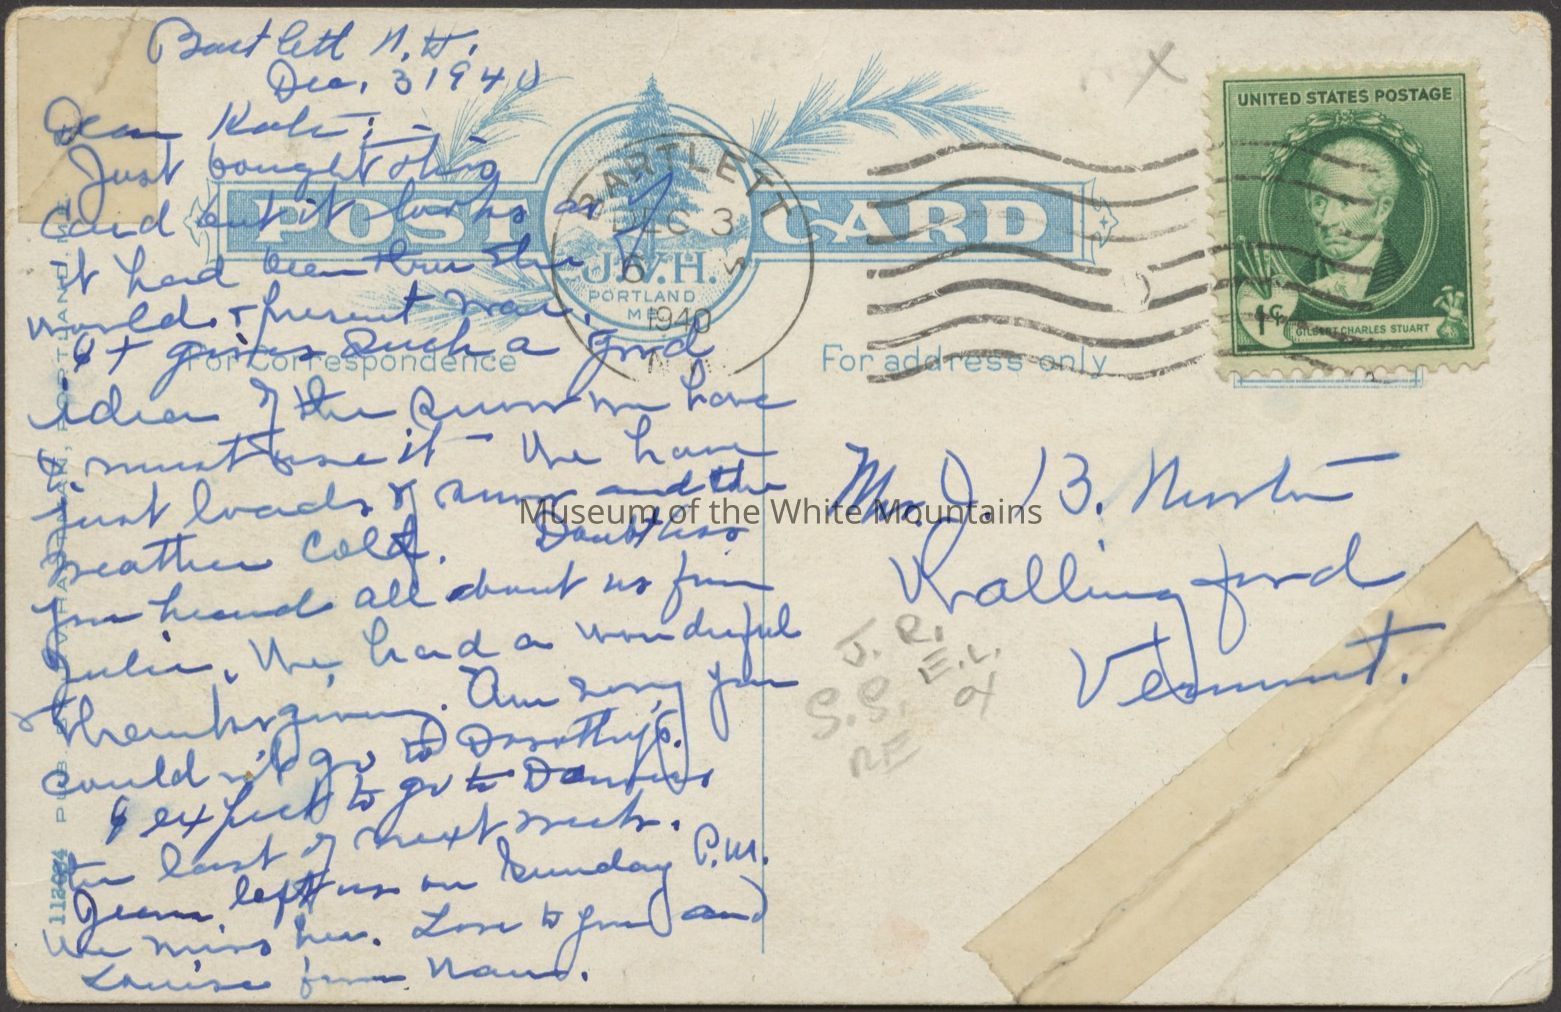 Bartlett N.H.
Dec. 3 1940
Dear Kate:—
Just bought this
card but it looks as if
it had been thru the
world & present war.
It gives such a good
idea of the snow we have
I must use it — We have
just loads of snow and the
weather cold. Doubtless
you heard all about us from
Julia. We had a wonderful
Thanksgiving. Am sorry you
could n't go to Dorothy's.
I expect to go to
the last of next week.
Jean left us on Sunday P.M.
We miss her. Love to you and
Louise from Nan.
POST CARD
J.V.H.
PORTLAND
ME
For correspondence
For address only
BARTLETT
DEC 3
6
1940
N.H.
UNITED STATES POSTAGE
1¢
GILBERT CHARLES STUART
Mrs. J. B.
Wallingford
Vermont.
J. R.
E.L.
S.S.
RE
Museum of the White Mountains
PORTLAND, ME.